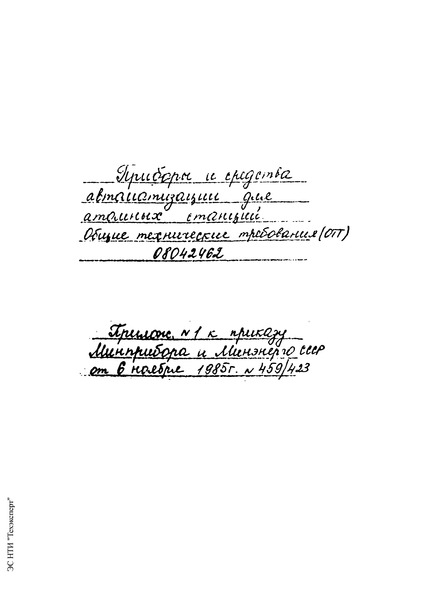 Приборы и средства
автоматизации для
атомных станций
Общие технические требования (ОТТ)
08042462
Прилож. № 1 к приказу
Минприбора и Минэнерго СССР
от 6 ноября 1985г. № 459/423
ЭС НТИ "Техэксперт"